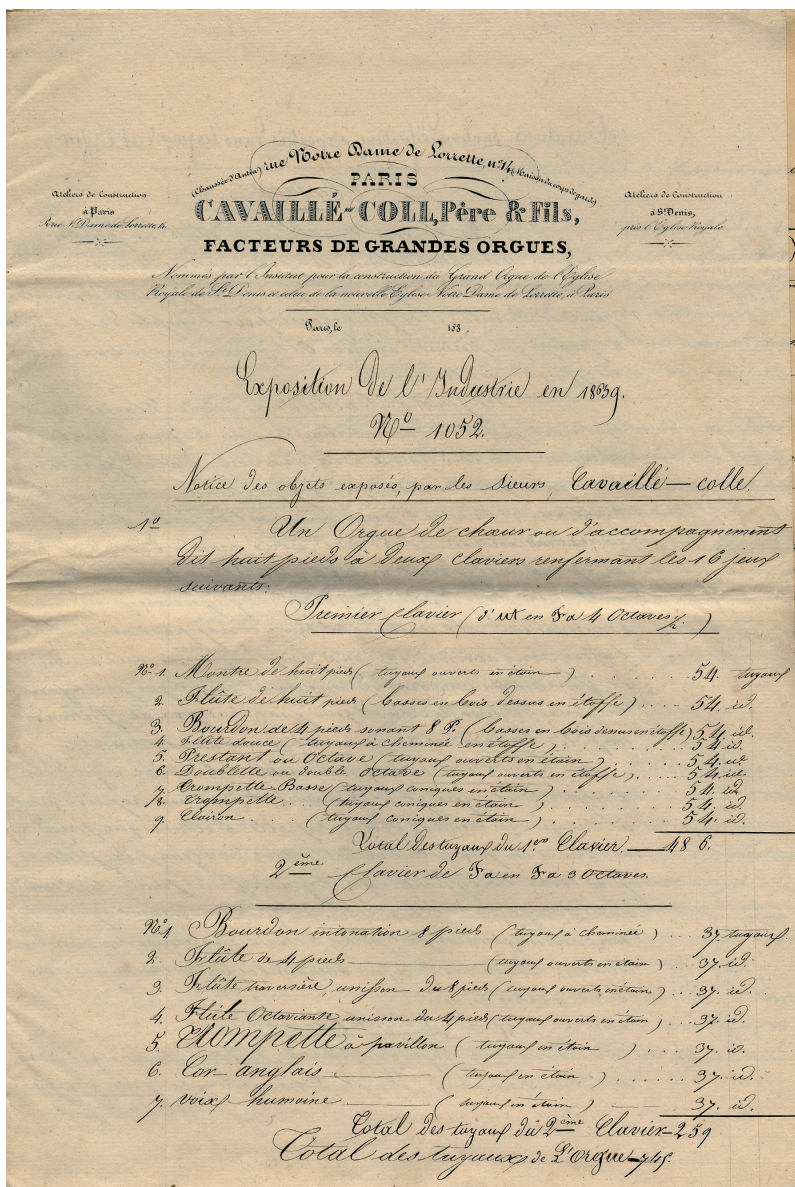 (Chaussée d'Antin) rue Notre Dame de Lorrette, n° 14 (Maison du corps de garde)
PARIS
Ateliers de Construction
à Paris
Rue N. Dame de Lorrette, 14.
CAVAILLÉ-COLL, Père & Fils,
Ateliers de Construction
à St Denis,
près l'Eglise Royale.
FACTEURS DE GRANDES ORGUES,
Nommés par l'Institut pour la construction du Grand Orgue de l'Eglise
Royale de St Denis et celui de la nouvelle Eglise Notre Dame de Lorrette, à Paris
Paris, le 183
Exposition De l'Industrie en 1839.
No 1052.
Notice des objets exposés, par les Sieurs, Cavaillé—colle.
1o Un Orgue de chœur ou d'accompagnement
dit huit pieds à deux claviers renfermant les 16 jeux
suivants:
Premier Clavier (d'ut en Fa 4 Octaves 1/2.)
No 1. Montre de huit pieds (tuyaux ouverts en étain) . . 54. tuyaux
2. Flûte de huit pieds (basses en bois dessus en étoffe) . . . . 54. id.
3. Bourdon de 4 pieds sonant 8 P. (basses en bois dessus en étoffe) 54. id.
4. Flûte douce (tuyaux à cheminée en étoffe) . . . . . . 54 id.
5. Prestant ou Octave (tuyaux ouverts en étain) . . . . . 54. id
6. Doublette ou double Octave (tuyaux ouverts en étoffe) . . . . 54. id
7. Trompette Basse (tuyaux coniques en étain) . . . . . . 54. id
8. Trompette . . . (tuyaux coniques en étain) . . . . . . 54. id.
9. Clairon . . . . (tuyaux coniques en étain) . . . . . . 54. id.
Total des tuyaux du 1er Clavier. — 48 6.
2ème Clavier de Fa en Fa 3 Octaves.
No 1 Bourdon intonation 8 pieds (tuyaux à cheminée) . . . 37 tuyaux.
2. Flûte de 4 pieds — (tuyaux ouverts en étain) . . . 37. id.
3. Flûte traversière, unisson du 8 pieds (tuyaux ouverts en étain) . . . 37. id.
4. Flûte Octaviante unisson du 4 pieds (tuyaux ouverts en étain) . . . 37. id.
5. Trompette à pavillon (tuyaux en étain) . . . . 37. id.
6. Cor-anglais — (tuyaux en étain) . . . . . 37. id.
7. Voix humaine — (tuyaux en étain) — 37. id.
Total des tuyaux du 2ème Clavier—259
Total des tuyaux de L'Orgue—745.